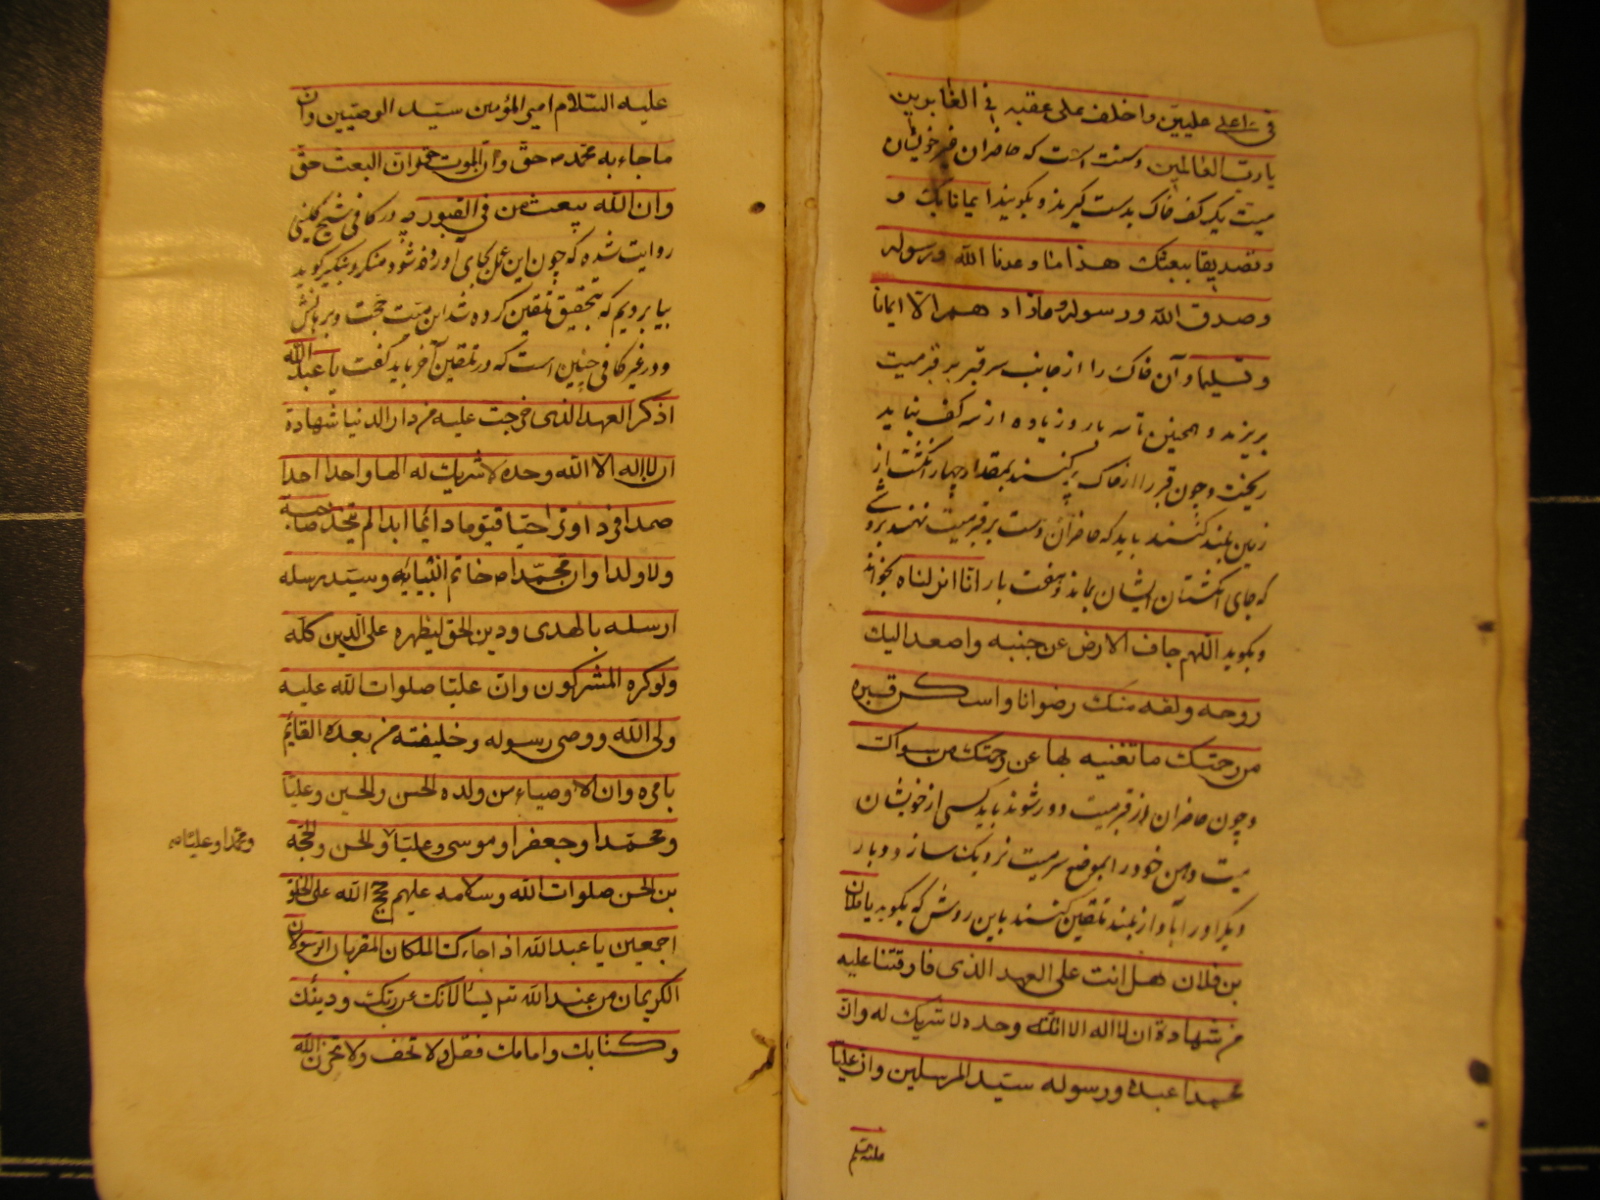 فی اعلی علیین واخلف علی عقبه فی الغابرین
یا رب العالمین وسنت است که حاضران غیر خویشان
میت یک کف خاک بدست گیرند و بگویند ایمانا بک و
وتصدیقا ببعثک هذا ما وعدنا الله ورسوله
وصدق الله ورسوله وما زادهم الا ایمانا
وتسلیما و آن خاک را از جانب سر قبر بر قبر میت
بریزند و همچنین تا سه بار و زیاده از سه کف نباید
ریخت و چون قبر را از خاک پر کنند بمقدار چهار انگشت از
زمین بلند کنند باید که حاضران دست بر قبر میت نهند بروشی
که جای انگشتان ایشان بماند و هفت بار انا انزلناه بخوانند
وبگوید اللهم جاف الارض عن جنبه واصعد الیک
روحه ولقه منک رضوانا واسکن قبره
من رحمتک ما تغنیه بها عن رحمتک من سواک
وچون حاضران از قبر میت دور شوند باید کسی از خویشان
میت دهن خود را بموضع سر میت نزدیک سازد و بار
دیگر او را بآواز بلند تلقین کنند باین روش که بگوید یا فلان
بن فلان هل انت علی العهد الذی فارقتنا علیه
من شهادة ان لا اله الا الله وحده لا شریک له وان
محمدا عبده ورسوله سید المرسلین وان علیا
علیه السلام امیر المؤمنین سید الوصیین وان
ما جاء به محمد ص حق وان الموت حق وان البعث حق
وان الله یبعث من فی القبور و در کافی شیخ کلینی
روایت شده که چون این عمل بجای آورده شود منکر و نکیر گوید
بیا برویم که بتحقیق تلقین کرده شد این میت حجت و برهانش
ودر غیر کافی چنین است که در تلقین آخر باید گفت یا عبد الله
اذکر العهد الذی خرجت علیه من دار الدنیا شهادة
ان لا اله الا الله وحده لا شریک له الها واحدا احدا
صمدا فردا وترا حیا قیوما دائما ابدا لم یتخذ صاحبة
ولا ولدا وان محمدا ص خاتم انبیائه وسید رسله
ارسله بالهدی ودین الحق لیظهره علی الدین کله
ولو کره المشرکون وان علیا صلوات الله علیه
ولی الله ووصی رسوله وخلیفته من بعده القایم
بامره وان الاوصیاء من ولده الحسن والحسین وعلیا
ومحمدا وجعفرا وموسی وعلیا والحسن والحجة
ومحمدا وعلیا صح
بن الحسن صلوات الله وسلامه علیهم حجج الله علی الخلق
اجمعین یا عبد الله اذا جاءک الملکان المقربان الرسولان
الکریمان من عند الله ثم یسألانک عن ربک ودینک
وکتابک وامامک فقل ولا تخف ولا تحزن الله